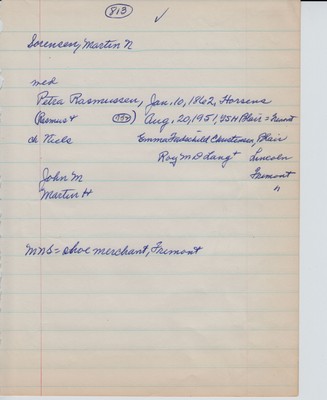 813 ✓
Sorensen, Martin N
med
Petra Rasmussen, Jan. 10, 1862, Horsens
Rasmus + Aug. 20, 1951, Blair = Fremont
ch Niels Emma Christensen, Blair
Roy M D Lang + Lincoln
John M Fremont
Martin H "
MNS = shoe merchant, Fremont